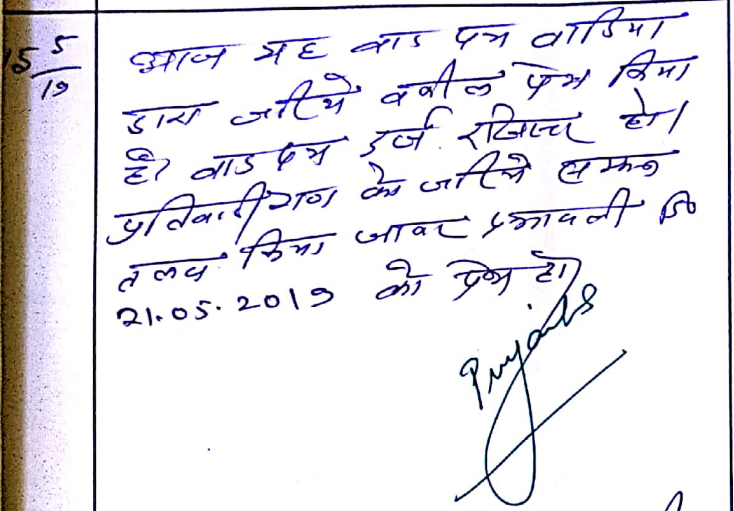 15 5/19
आज यह वाद पत्र वादिया
द्वारा जरिये वकील पेश किया
है। वाद पत्र दर्ज रजिस्टर हो।
प्रतिवादीगण को जरिये सम्मन
तलब किया जाकर पत्रावली दि०
21.05.2019 को पेश हो।